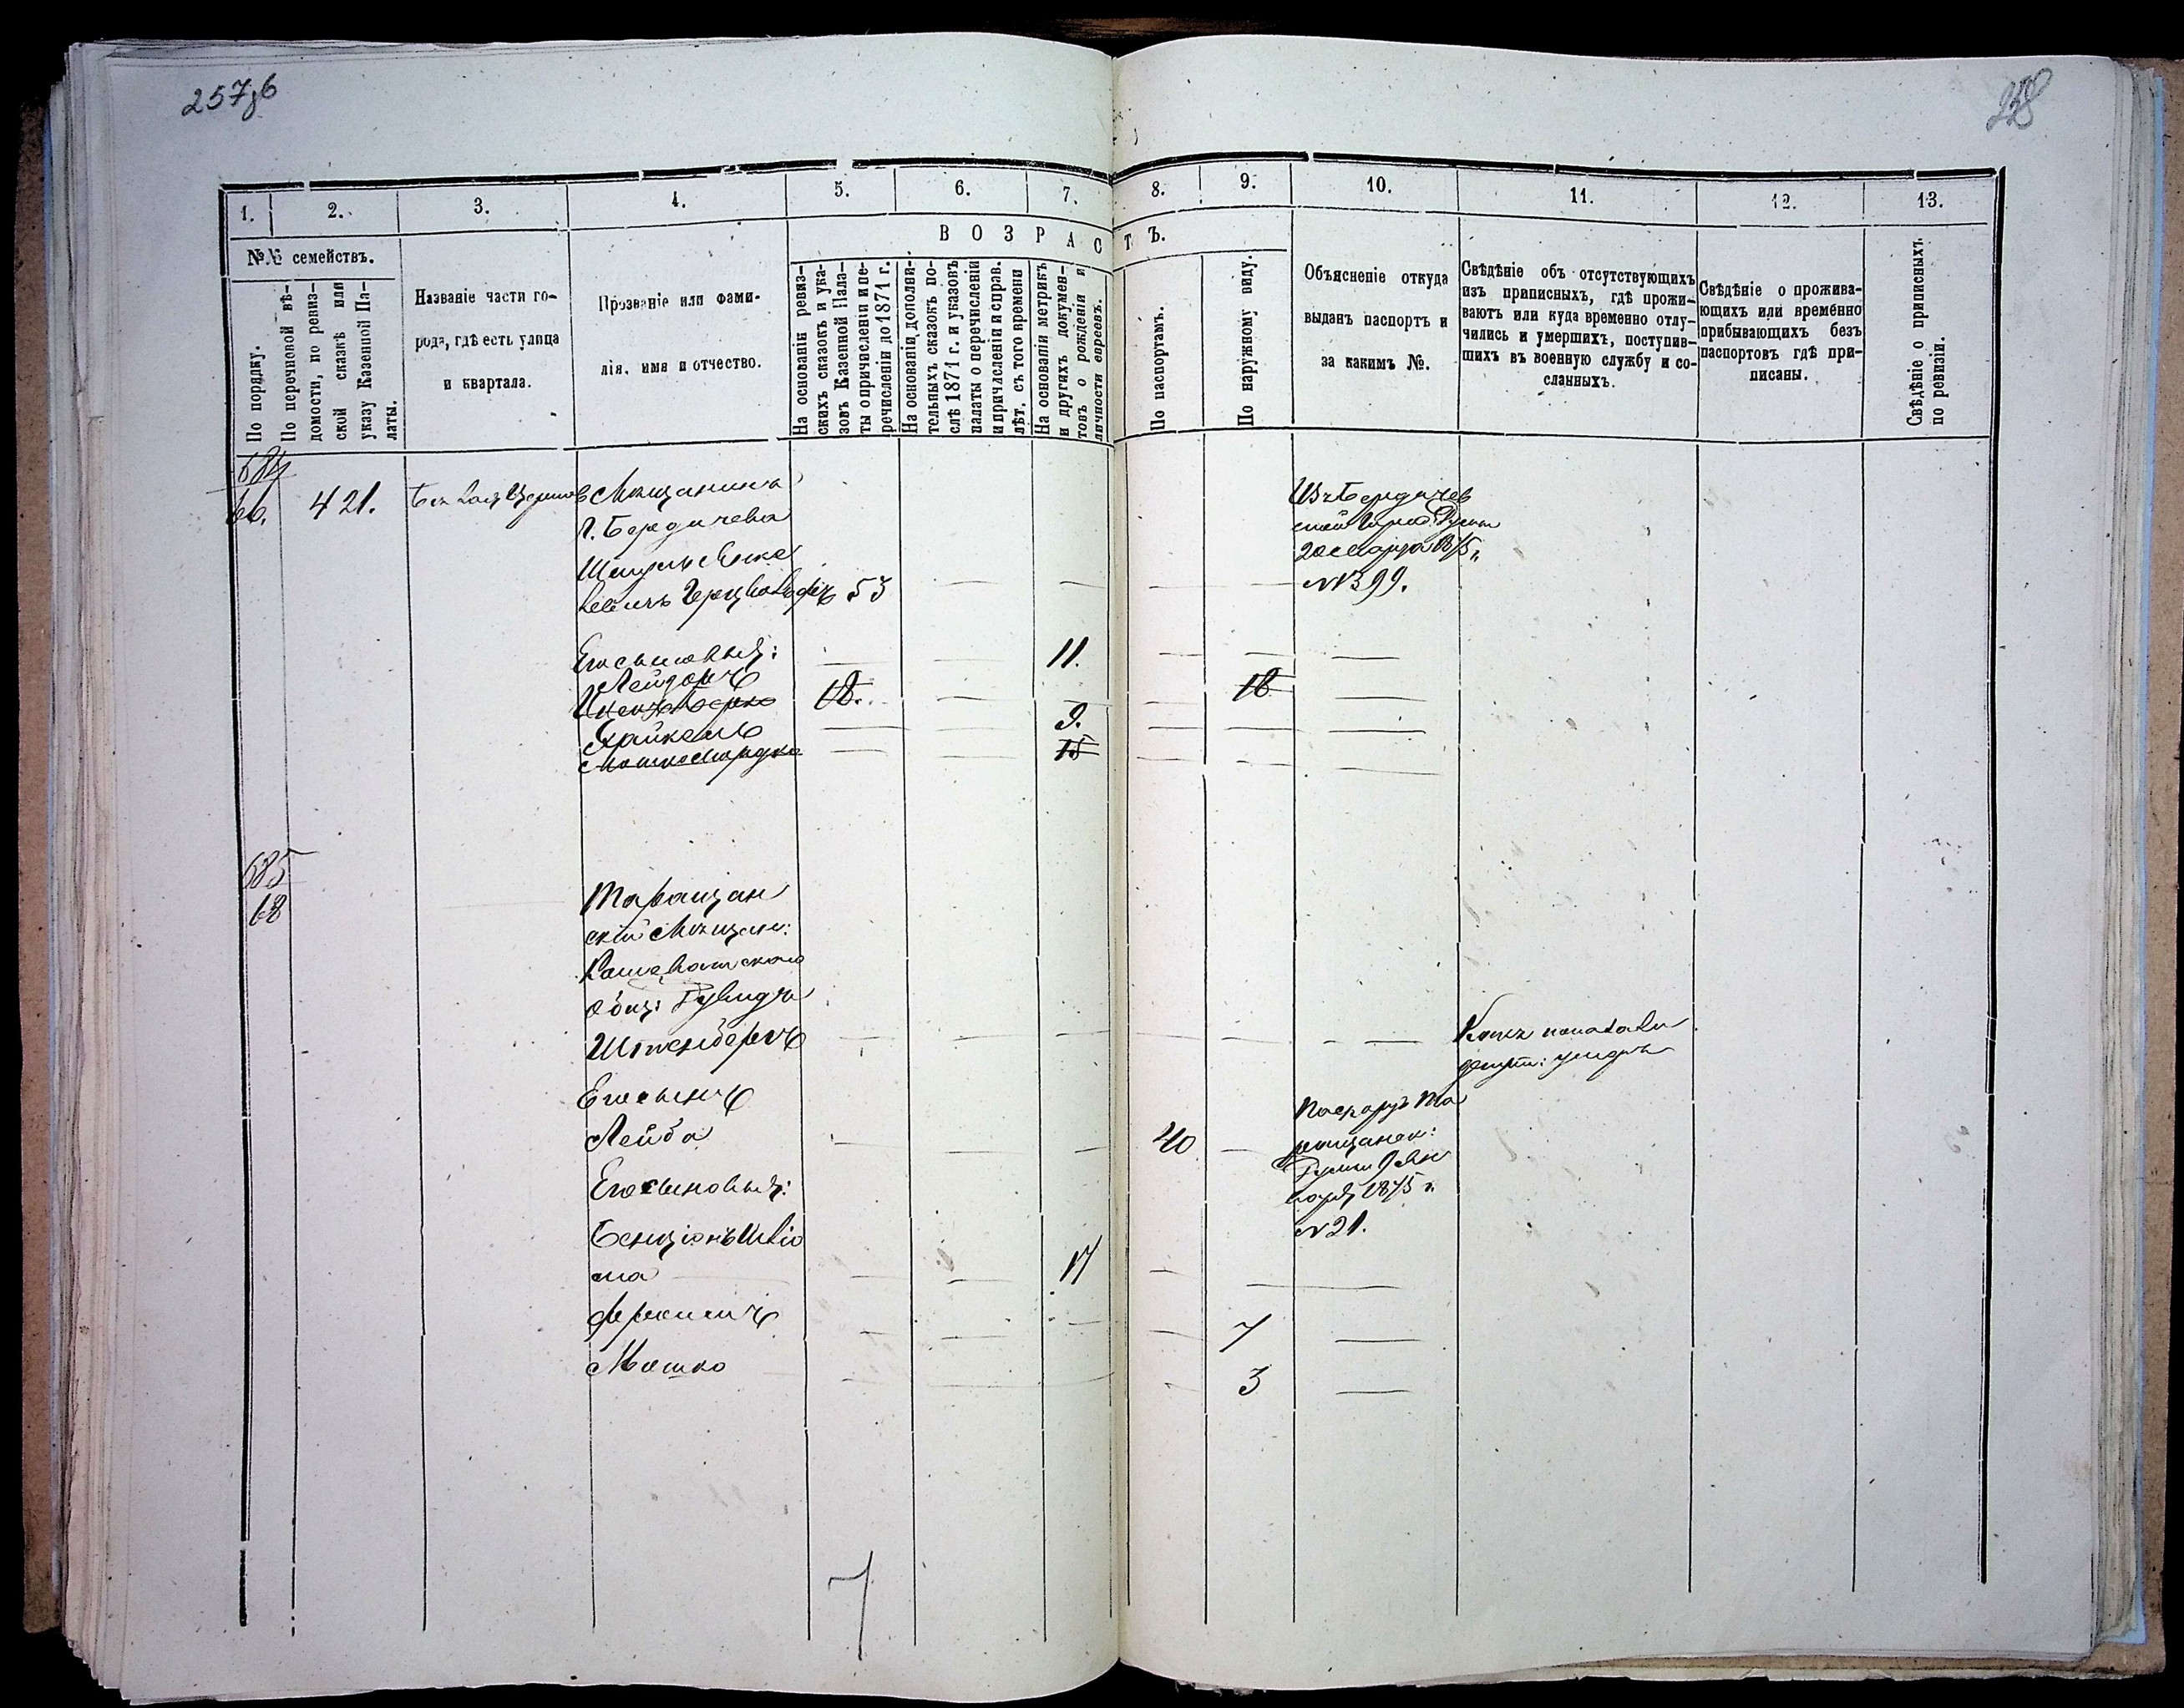 257об
258
1. 2. 3. 4. 5. 6. 7. 8. 9. 10. 11. 12. 13.
№№ семействъ.
В О З Р А С Т Ъ.
По порядку.
По перечневой вѣ-
домости, по ревиз-
ской сказкѣ или
указу Казенной Па-
латы.
Названіе части го-
рода, гдѣ есть улица
и квартала.
Прозваніе или фами-
лія, имя и отчество.
На основаніи ревиз-
скихъ сказокъ и ука-
зовъ Казенной Пала-
ты о причисленіи и пе-
речисленіи до 1871 г.
На основаніи дополни-
тельныхъ сказокъ по-
слѣ 1871 г. и указовъ
палаты о перечисленіи
и причисленіи и справ.
лѣт. съ того времени
На основаніи метрикъ
и другихъ докумен-
товъ о рожденіи и
личности евреевъ.
По паспортамъ.
По наружному виду.
Объясненіе откуда
выданъ паспортъ и
за какимъ №.
Свѣдѣніе объ отсутствующихъ
изъ приписныхъ, гдѣ прожи-
ваютъ или куда временно отлу-
чились и умершихъ, поступив-
шихъ въ военную службу и со-
сланныхъ.
Свѣдѣніе о прожива-
ющихъ или временно
прибывающихъ безъ
паспортовъ гдѣ при-
писаны.
Свѣдѣніе о приписныхъ
по ревизіи.
684
66. 421. Мѣщанинъ
г. Бердичева
53
Изъ Бердичев
ской Город. Думы
20 Марта 1875 г.
№ 399.
Его сыновья: 11.
18. 18
Хайкель 9.
Мошко Мордко 15
685
68 Таращан
скій Мѣщан:
Кошеватскаго
общ: Рувинъ
Штенберг
Его сынъ
Лейба 40
Паспортъ Та
ращанск:
Думы 9 Ян
варя 1875 г.
№ 21.
Его сыновья:
Бенціонъ
17
7
Мошко 3
7